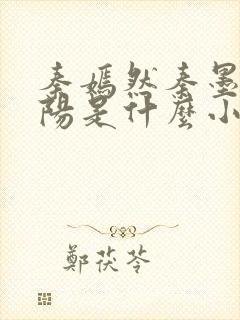 秦嫣然秦墨
陽是什麼小
鄭茯苓